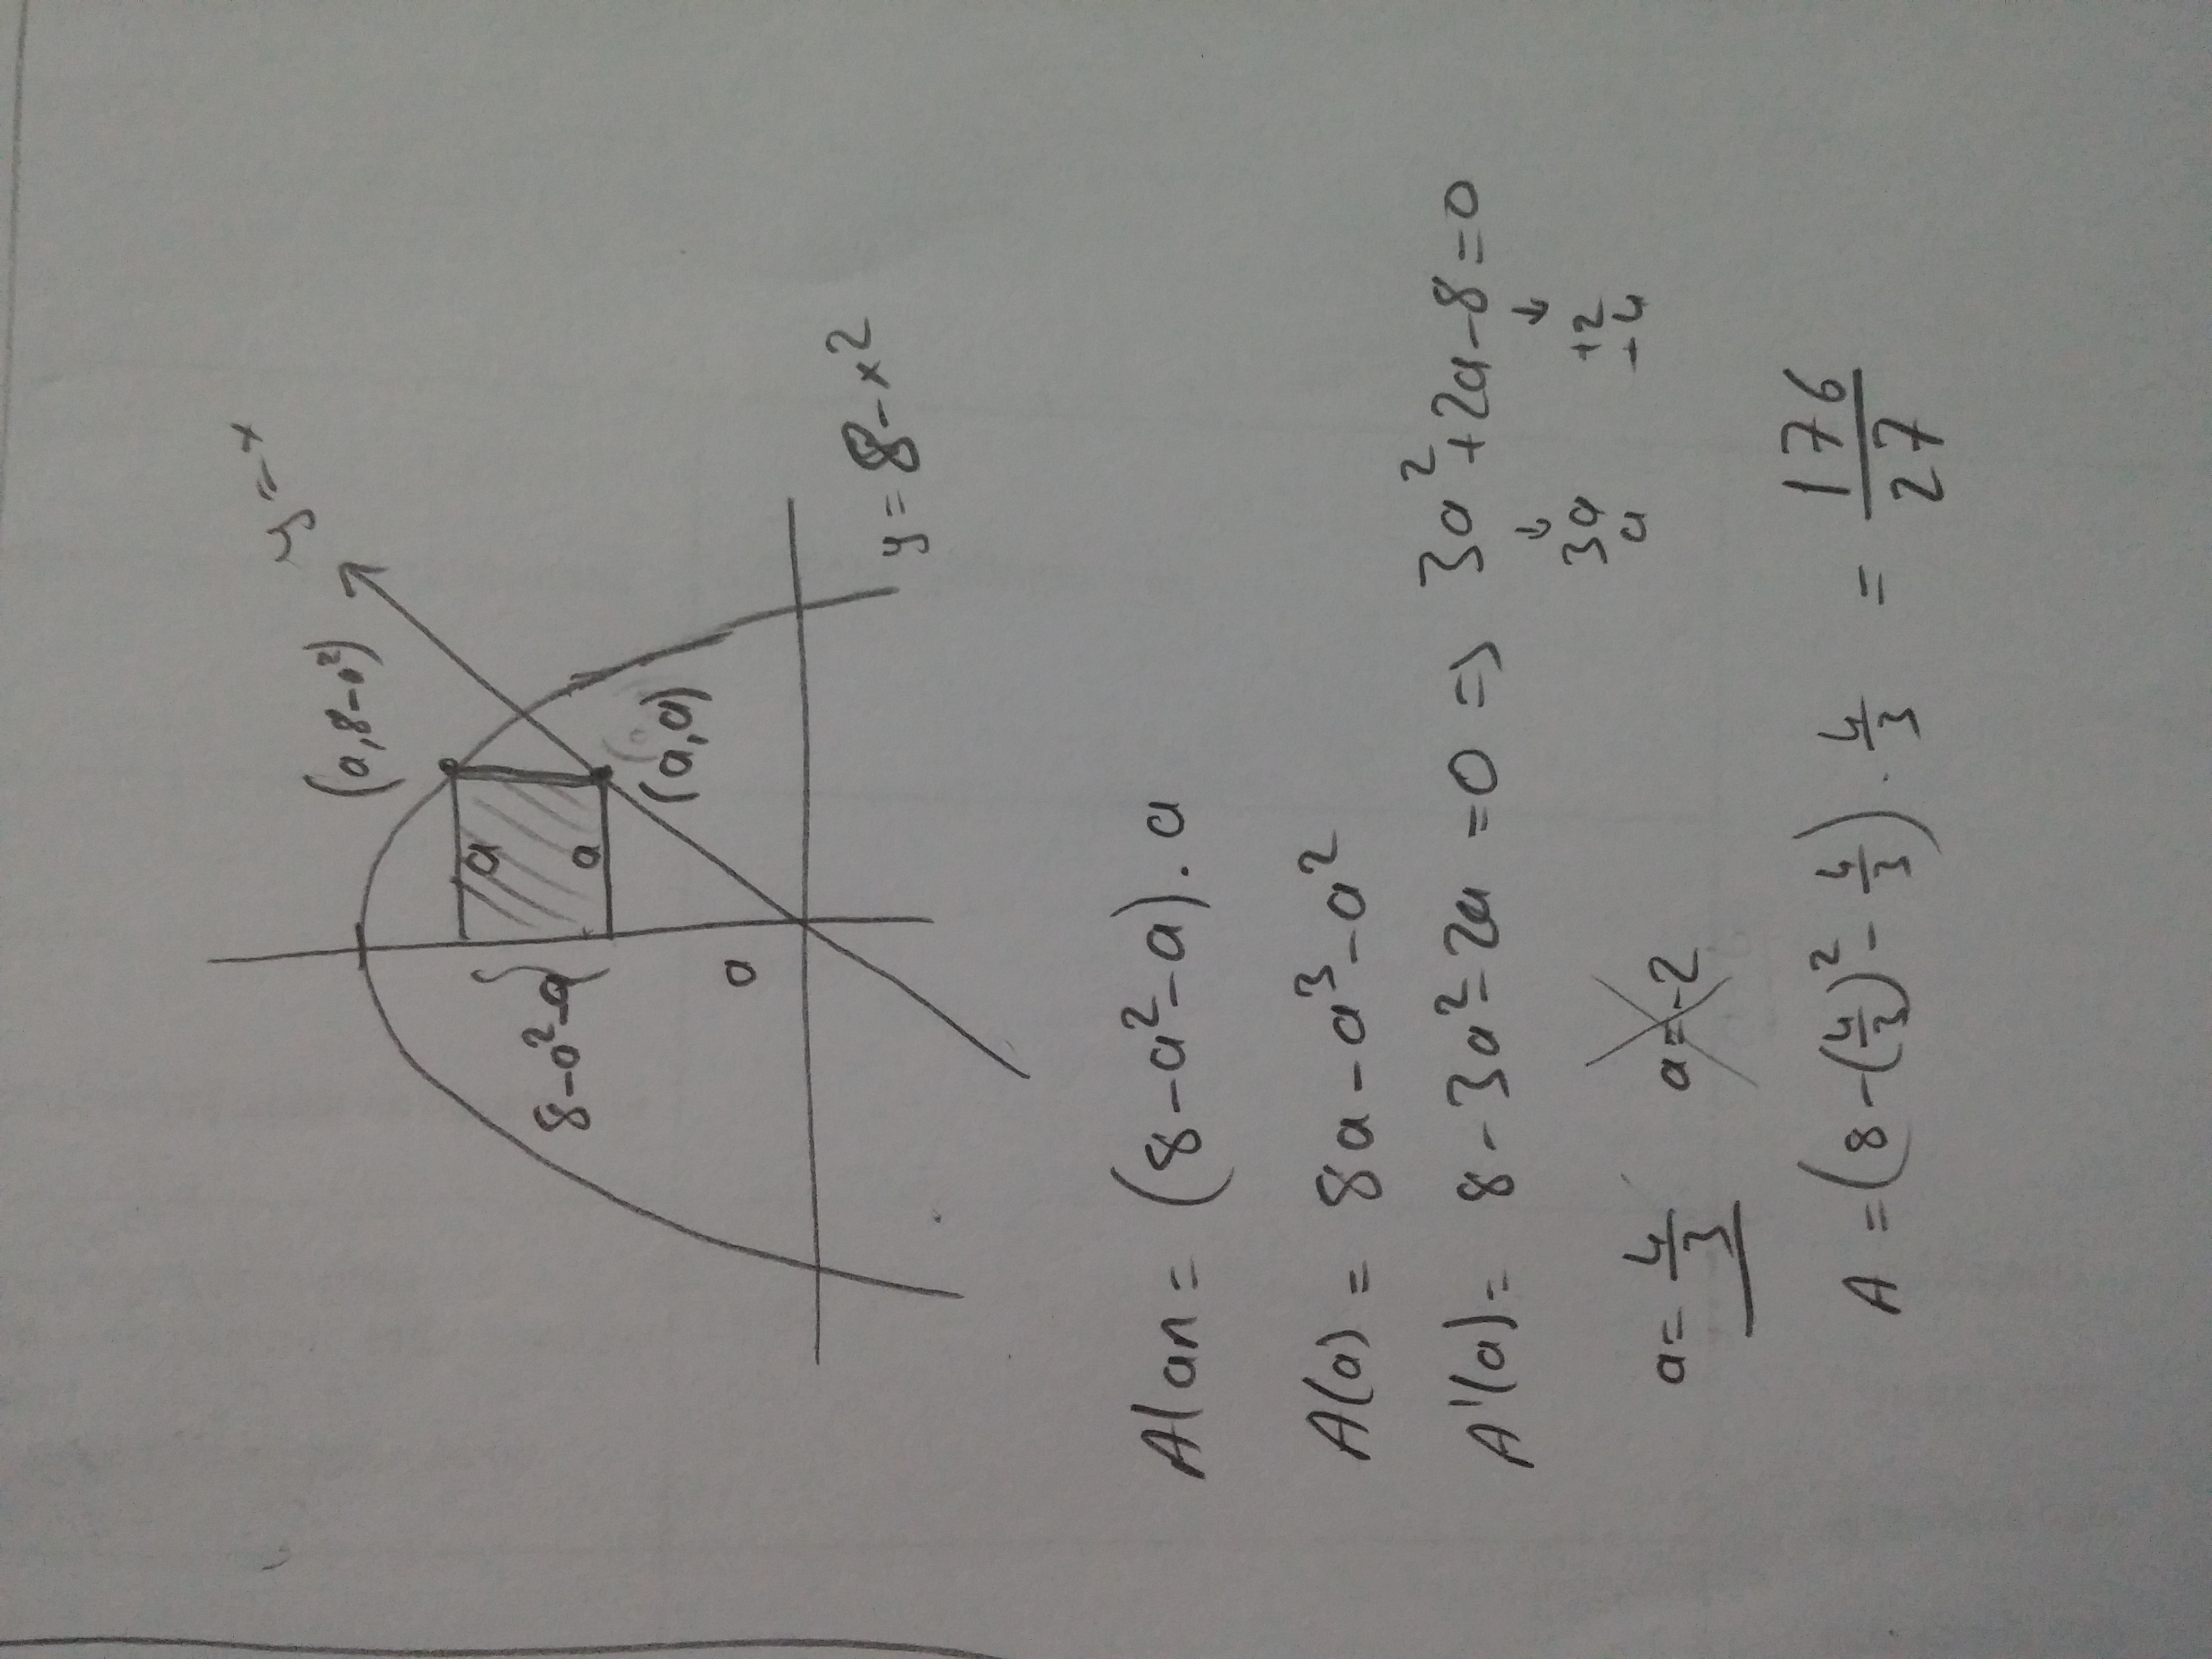 y=x
(a,8-a²)
a
a
8-a²-a
(a,a)
a
y=8-x²
Alan=(8-a²-a).a
A(a)=8a-a³-a²
A'(a)=8-3a²-2a=0 => 3a²+2a-8=0
↓ ↓
3a +2
a -4
a=4/3 a=-2
A=(8-(4/3)²-4/3).4/3 = 176/27